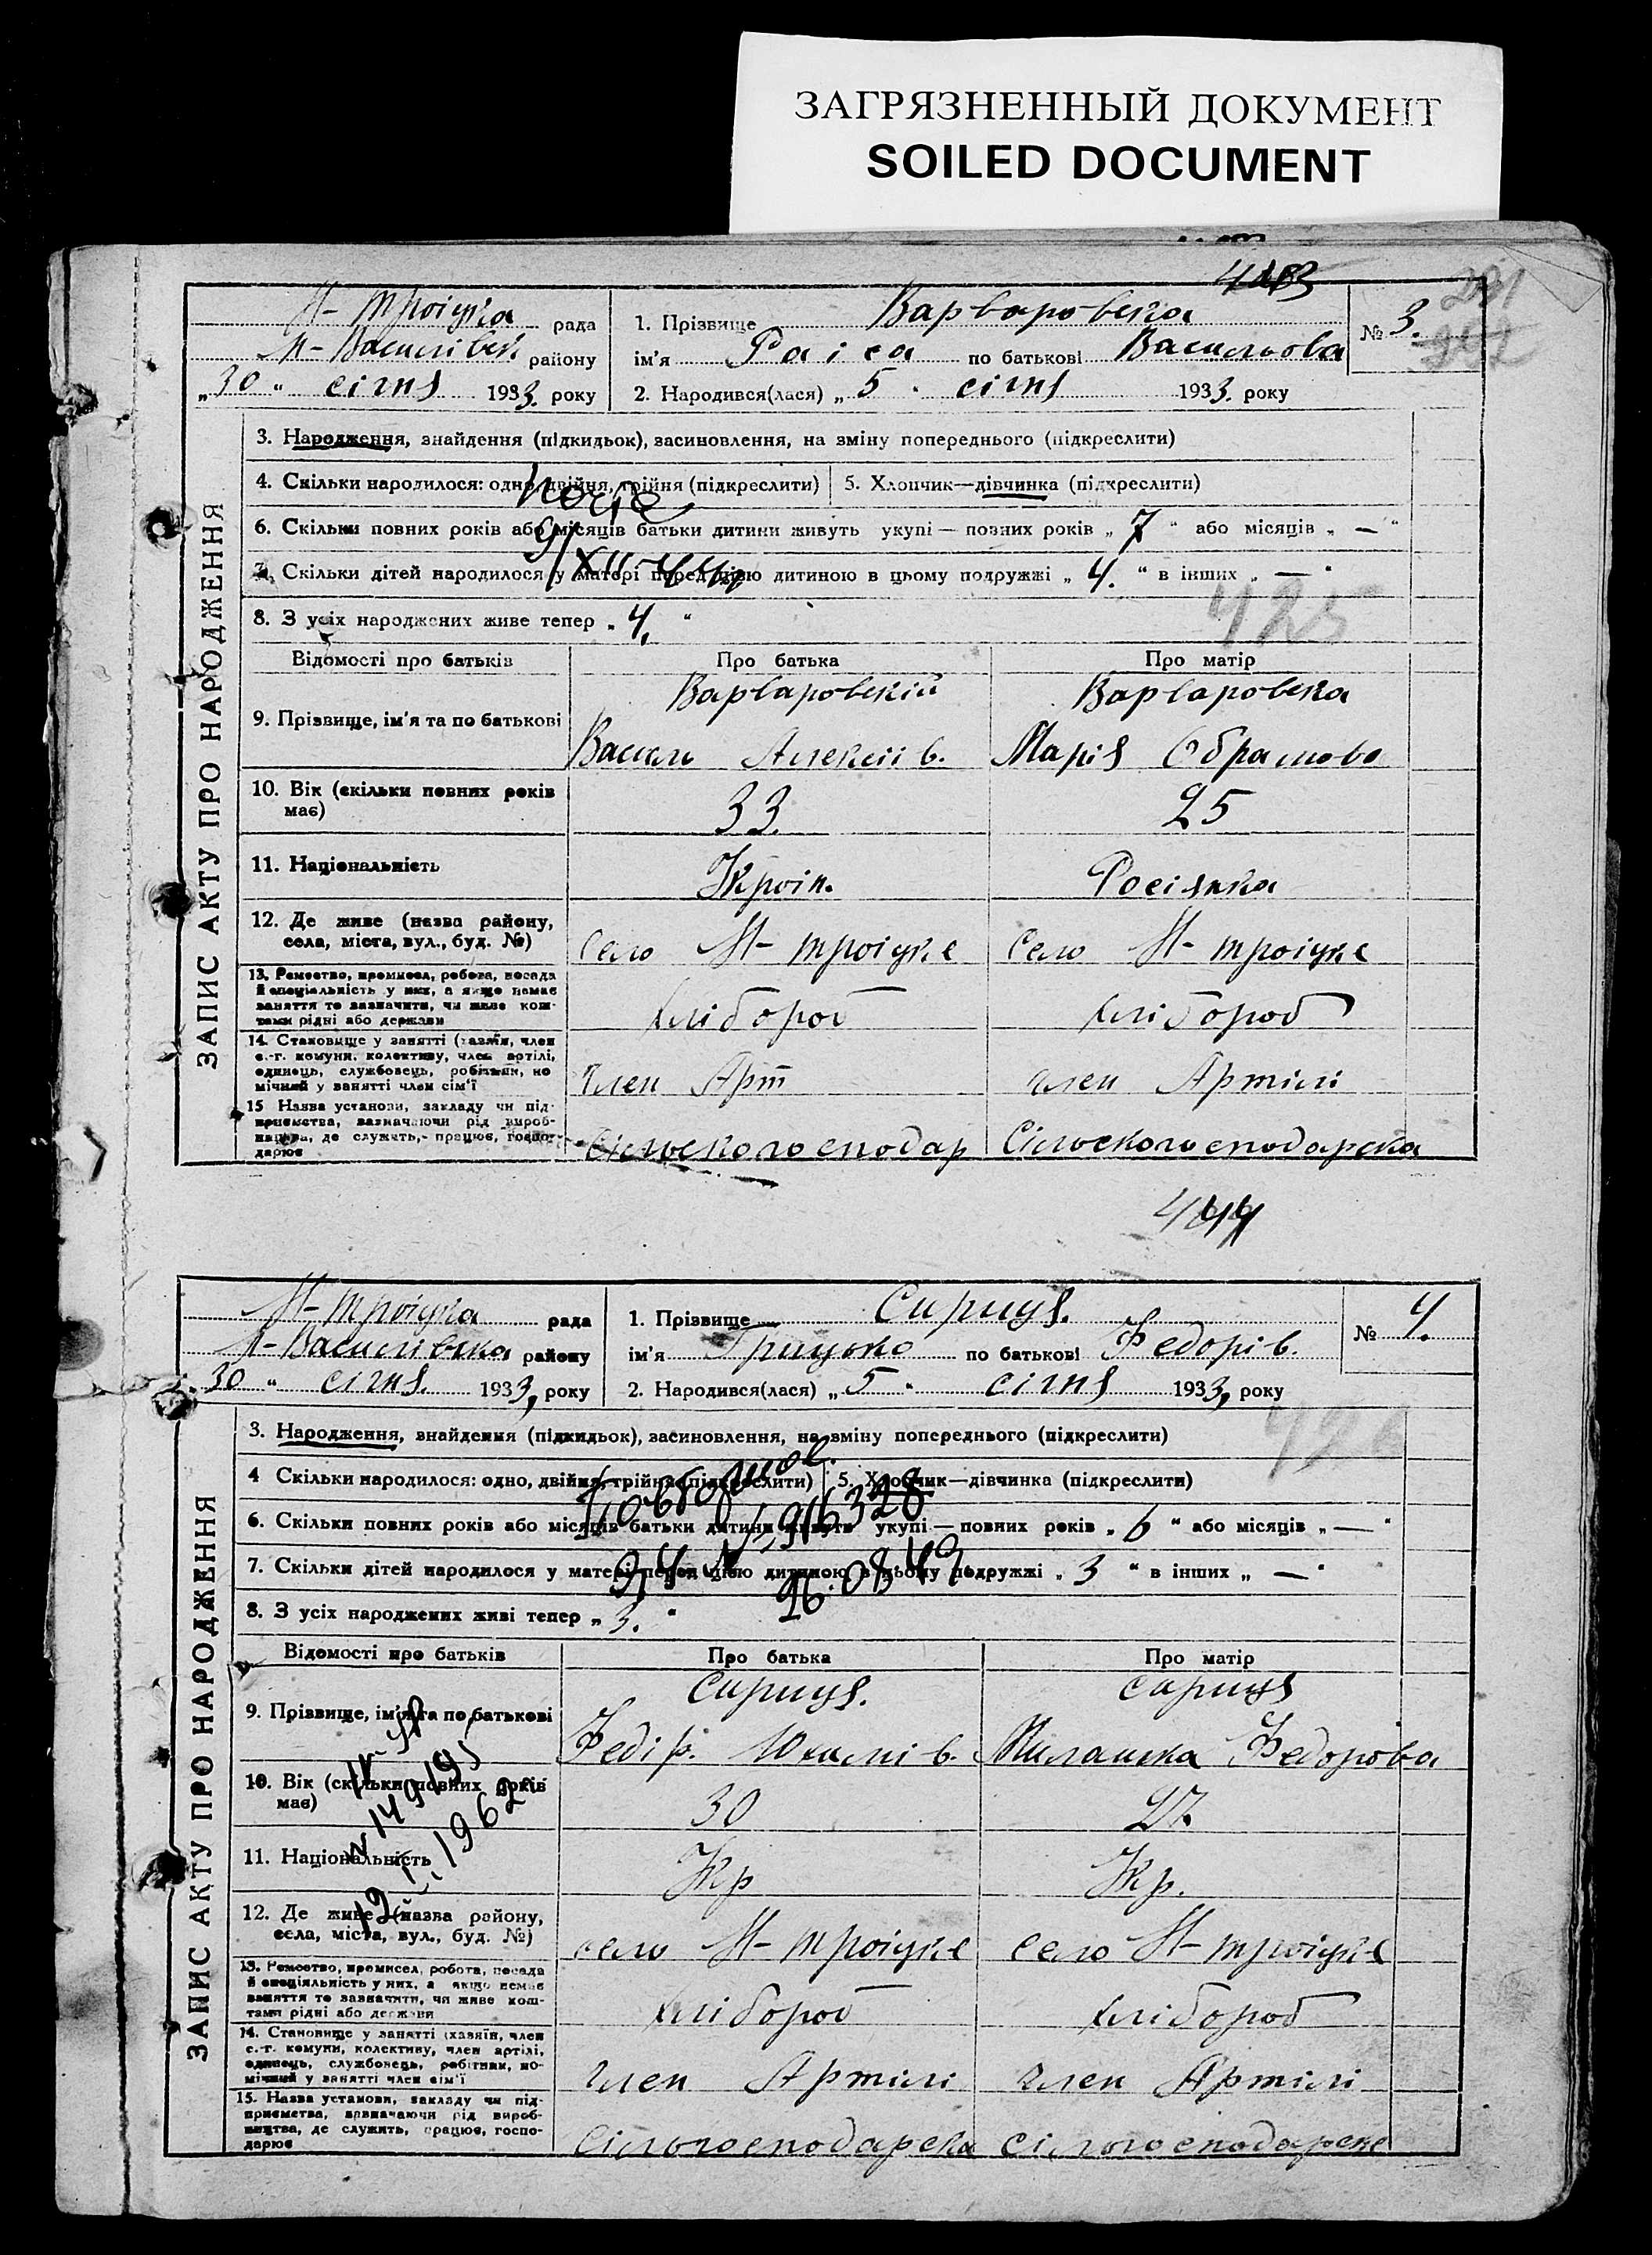 ЗАГРЯЗНЕННЫЙ ДОКУМЕНТ
SOILED DOCUMENT
Н-Троіцка рада
Л-Василівськ району
„30“ січня 1933. року
1. Прізвище Варваровська
ім'я Раіса по батькові Васильова
2. Народився(лася) „5“ січня 1933. року
№ 3.
ЗАПИС АКТУ ПРО НАРОДЖЕННЯ
3. Народження, знайдення (підкидьок), засиновлення, на зміну попереднього (підкреслити)
4. Скільки народилося: одно, двійня, трійня (підкреслити)
5. Хлопчик—дівчинка (підкреслити)
6. Скільки повних років або місяців батьки дитини живуть укупі — повних років „7“ або місяців „—“
7. Скільки дітей народилося у матері перед цією дитиною в цьому подружжі „4.“ в інших „—“
8. З усіх народжених живе тепер „4.“
425
Відомості про батьків Про батька Про матір
9. Прізвище, ім'я та по батькові
Варваровський
Василь Алексіів.
Варваровська
Марія Обрамова
10. Вік (скільки повних років має)
33.
25
11. Національність
Украін.
Росіянка
12. Де живе (назва району, села, міста, вул., буд. №)
село Н-Троіцке
село Н-Троіцке
13. Ремество, промисел, робота, посада й спеціальність у них, а якщо немає заняття то зазначити, чи живе коштами рідні або держави
хлібороб
хлібороб
14. Становище у занятті (хазяїн, член с.-г. комуни, колективу, член артілі, одинець, службовець, робітник, помічний у занятті член сім'ї
член Арт
член Артілі
15 Назва установи, закладу чи підприємства, зазначаючи рід виробництва, де служить, працює, господарює
Сільськогосподар
Сільськогосподарска
Н-Троіцка рада
Л-Васильівська району
30 “ січня. 1933, року
1. Прізвище Сириця.
ім'я Грицько по батькові Федорів.
2. Народився(лася) „5“ січня 1933, року
№ 4.
ЗАПИС АКТУ ПРО НАРОДЖЕННЯ
3. Народження, знайдення (підкидьок), засиновлення, на зміну попереднього (підкреслити)
426
4 Скільки народилося: одно, двійня, трійня (підкреслити)
5. Хлопчик—дівчинка (підкреслити)
6. Скільки повних років або місяців батьки дитини живуть укупі — повних років „6“ або місяців „—“
7. Скільки дітей народилося у матері перед цією дитиною в цьому подружжі „3“ в інших „—“
8. З усіх народжених живі тепер „3.“
Відомості про батьків Про батька Про матір
9. Прізвище, ім'я та по батькові
Сириця.
Федір. Юхимів.
Сириця
Милашка Федорова
10. Вік (скільки повних років має)
30
27.
11. Національність
Укр
Укр.
12. Де живе (назва району, села, міста, вул., буд. №)
село Н-Троіцке
село Н-Троіцке
13. Ремество, промисел, робота, посада й спеціяльність у них, а якщо немає заняття то зазначити, чи живе коштами рідні або держави
хлібороб
хлібороб
14. Становище у занятті (хазяїн, член с.-г. комуни, колективу, член артілі, одинець, службовець, робітник, помічний у занятті член сім'ї
член Артілі
член Артілі
15. Назва установи, закладу чи підприємства, зазначаючи рід виробництва, де служить, працює, господарює
Сільгосподарска
Сільгосподарске